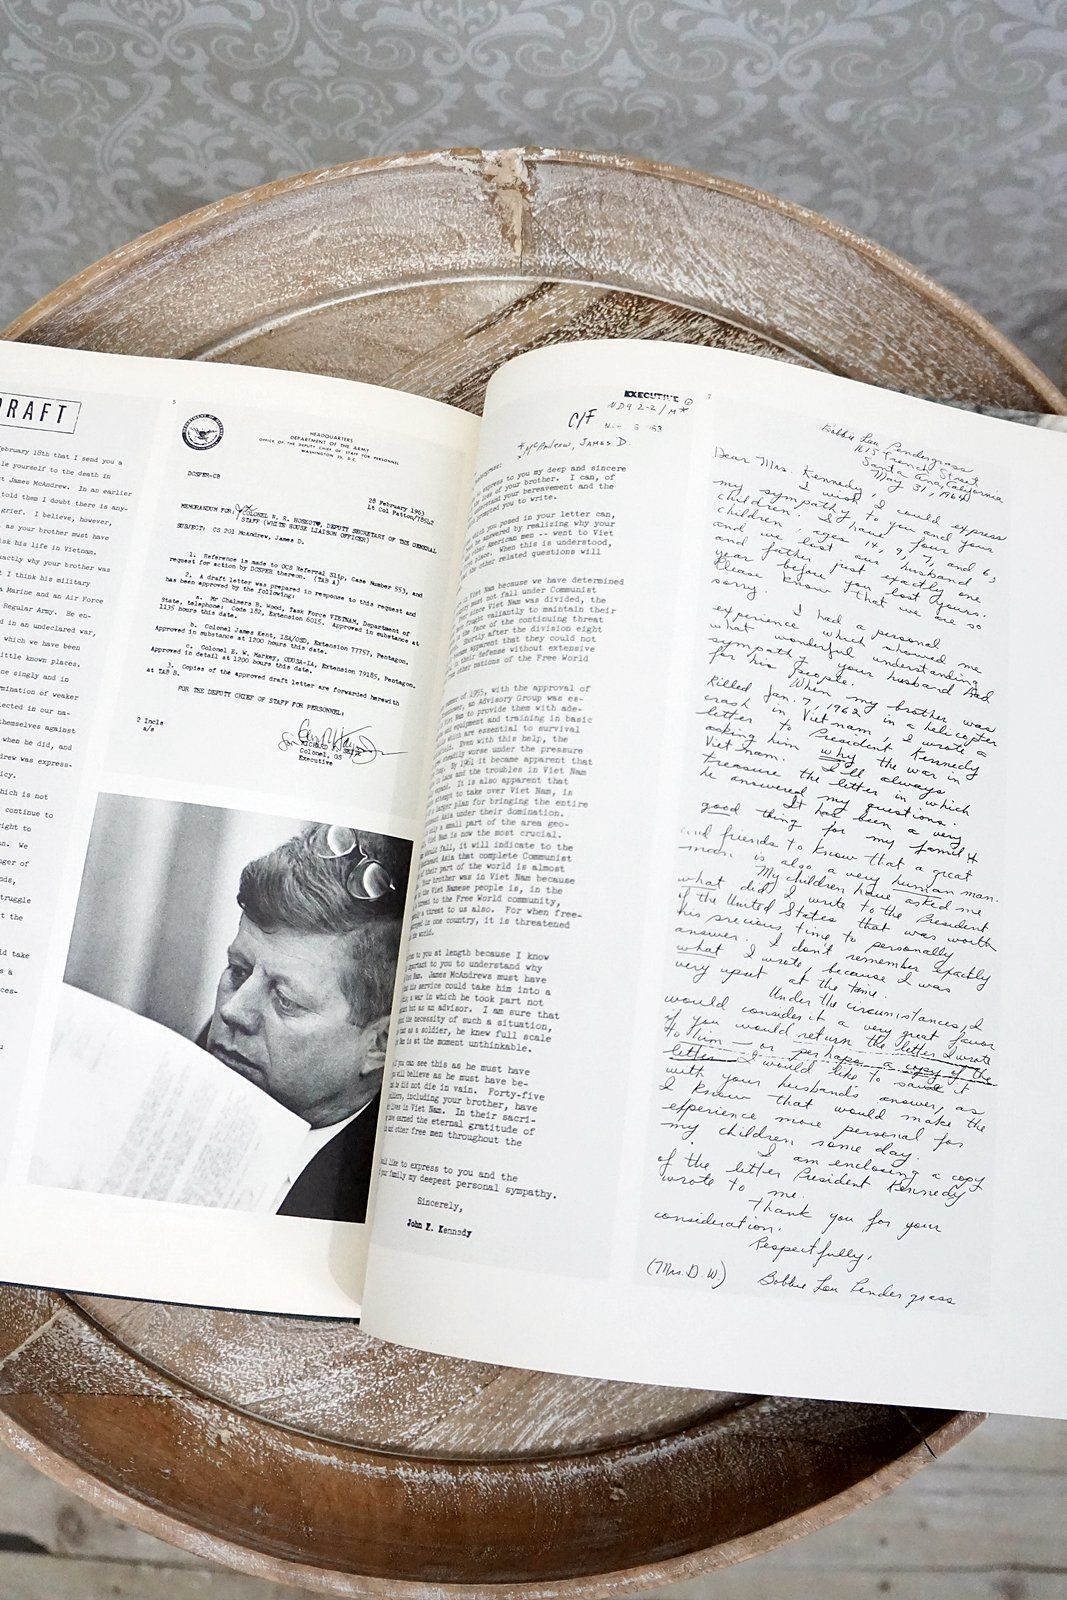 DRAFT
ebruary 18th that I send you a
le yourself to the death in
t James McAndrew. In an earlier
told them I doubt there is any-
grief. I believe, however,
as your brother must have
sk his life in Vietnam.
xactly why your brother was
t I think his military
a Marine and an Air Force
Regular Army. He en-
d in an undeclared war,
which we have been
ittle known places.
ne singly and in
mination of weaker
lected in our na-
themselves against
when he did, and
drew was express-
icy.
hich is not
continue to
right to
n. We
nger of
nds,
truggle
t the
ld take
s a
ces-
5
HEADQUARTERS
DEPARTMENT OF THE ARMY
OFFICE OF THE DEPUTY CHIEF OF STAFF FOR PERSONNEL
WASHINGTON 25, D.C.
DCSPER-CB
28 February 1963
Lt Col Patton/78512
MEMORANDUM FOR: COLONEL W. R. HOSKOT, DEPUTY SECRETARY OF THE GENERAL
STAFF (WHITE HOUSE LIAISON OFFICER)
SUBJECT: CS 201 McAndrew, James D.
1. Reference is made to OCS Referral Slip, Case Number 553, and
request for action by DCSPER thereon. (TAB A)
2. A draft letter was prepared in response to this request and
has been approved by the following:
a. Mr Chalmers B. Wood, Task Force VIETNAM, Department of
State, telephone: Code 182, Extension 6015. Approved in substance at
1135 hours this date.
b. Colonel James Kent, ISA/OSD, Extension 77757, Pentagon.
Approved in substance at 1200 hours this date.
c. Colonel E. W. Markey, ODUSA-IA, Extension 79185, Pentagon.
Approved in detail at 1200 hours this date.
3. Copies of the approved draft letter are forwarded herewith
at TAB B.
FOR THE DEPUTY CHIEF OF STAFF FOR PERSONNEL:
2 Incls
a/s
RICHARD
Colonel, GS
Executive
EXECUTIVE
C/F
ND9 2-2/M*
6 1963
* McAndrew, James D.
express to you my deep and sincere
loss of your brother. I can, of
understand your bereavement and the
prompted you to write.
which you posed in your letter can,
be answered by realizing why your
other American men -- went to Viet
place. When this is understood,
the other related questions will
Viet Nam because we have determined
must not fall under Communist
since Viet Nam was divided, the
fought valiantly to maintain their
face of the continuing threat
Shortly after the division eight
became apparent that they could not
in their defense without extensive
other nations of the Free World
of 1955, with the approval of
an Advisory Group was es-
Viet Nam to provide them with ade-
and equipment and training in basic
which are essential to survival
Even with this help, the
steadily worse under the pressure
By 1961 it became apparent that
Laos and the troubles in Viet Nam
expand. It is also apparent that
attempt to take over Viet Nam, is
larger plan for bringing the entire
Asia under their domination.
only a small part of the area geo-
Viet Nam is now the most crucial.
should fall, it will indicate to the
Southeast Asia that complete Communist
their part of the world is almost
Your brother was in Viet Nam because
the Viet Namese people is, in the
threat to the Free World community,
a threat to us also. For when free-
in one country, it is threatened
world.
to you at length because I know
important to you to understand why
Nam. James McAndrews must have
his service could take him into a
a war in which he took part not
but as an advisor. I am sure that
the necessity of such a situation,
as a soldier, he knew full scale
is at the moment unthinkable.
you can see this as he must have
you will believe as he must have be-
he did not die in vain. Forty-five
soldiers, including your brother, have
lives in Viet Nam. In their sacri-
earned the eternal gratitude of
and other free men throughout the
like to express to you and the
your family my deepest personal sympathy.
Sincerely,
John F. Kennedy
7
Bobbie Lou Pendergrass
1615 French Street
Santa Ana, California
May 31, 1964
Dear Mrs. Kennedy,
I wish I could express
my sympathy to you and your
children. I have four
children, ages 14, 9, 7, and 6,
and we lost our husband
and father just exactly one
year before you lost yours.
Please know that we are so
sorry.
I had a personal
experience which showed me
what wonderful understanding
sympathy your husband had
for his people.
When my brother was
killed Jan. 7, 1962 in a helicopter
crash in Vietnam, I wrote a
letter to President Kennedy
asking him why the war in
Vietnam. I'll always
treasure the letter in which
he answered my questions.
It has been a very
good thing for my family
and friends to know that a great
man is also a very human man.
My children have asked me
what did I write to the President
of the United States that was worth
his precious time to personally
answer. I don't remember exactly
what I wrote because I was
very upset at the time.
Under the circumstances, I
would consider it a very great favor
if you would return the letter I wrote
to him — or perhaps a copy of the
letter I would like to save it
with your husband's answer, as
I know that would make the
experience more personal for
my children some day.
I am enclosing a copy
of the letter President Kennedy
wrote to me.
Thank you for your
consideration.
Respectfully,
(Mrs. D. W) Bobbie Lou Pendergrass